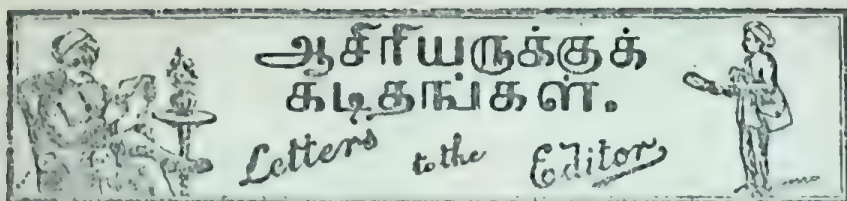 ஆசிரியருக்குக்
கடிதங்கள்.
Letters to the Editor